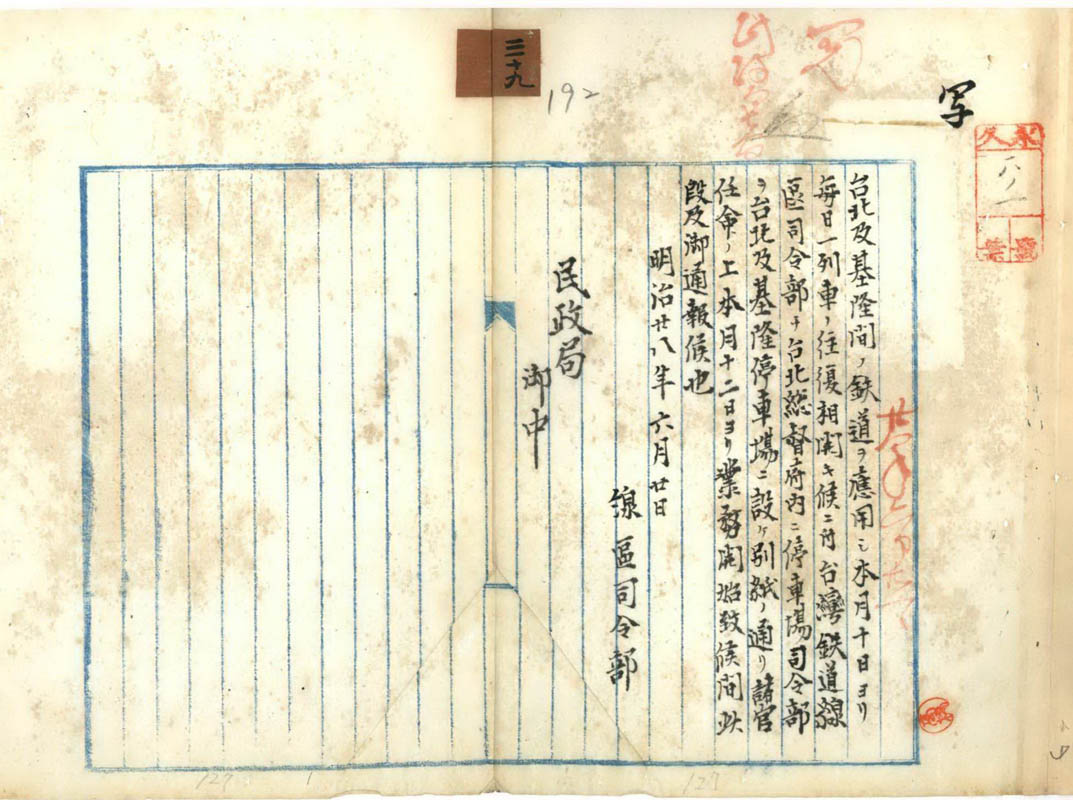 写
台北及基隆間ノ鉄道ヲ應用シ本月十日ヨリ
毎日一列車ノ往復相開キ候ニ付台灣鉄道線
區司令部ヲ台北総督府内ニ停車場司令部
ヲ台北及基隆停車場ニ設ケ別紙ノ通リ諸官
任命ノ上本月十二日ヨリ業務開始致候間此
段及御通報候也
明治廿八年六月廿日
線區司令部
民政局
御中
三十九
192
127
127